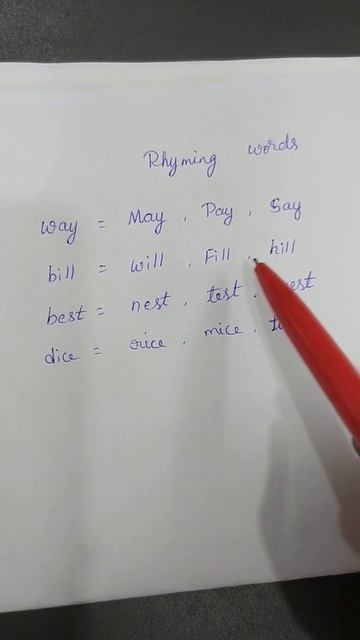 Rhyming words
way = May , Pay , Say
bill = will , Fill , hill
best = nest , test ,
dice = rice , mice ,